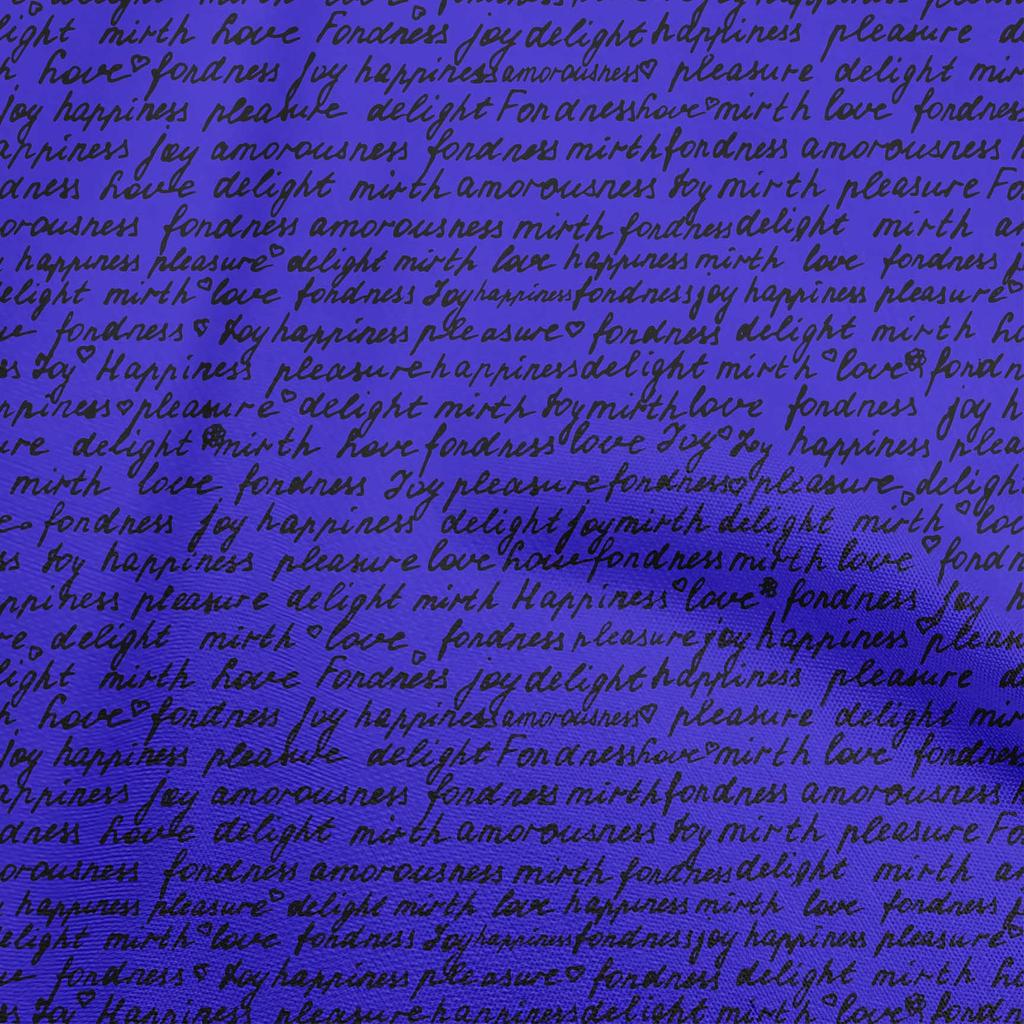 light mirth love Fondness joy delight happiness pleasure
love fondness joy happiness amorousness pleasure delight mir
joy happiness pleasure delight Fondness love mirth love fondness
appiness joy amorousness fondness mirth fondness amorousness
dness love delight mirth amorousness Joy mirth pleasure Fo
orousness fondness amorousness mirth fondness delight mirth
happiness pleasure delight mirth love happiness mirth love fondness
elight mirth love fondness Joy happiness fondness joy happiness pleasure
fondness Joy happiness pleasure fondness delight mirth
ss Joy Happiness pleasure happiness delight mirth love fondn
ppiness pleasure delight mirth Joy mirth love fondness joy h
ure delight mirth love fondness love Joy Joy happiness plea
mirth love fondness Joy pleasure fondness pleasure delight
e fondness joy happiness delight joy mirth delight mirth lov
ss Joy happiness pleasure love love fondness mirth love fondn
ppiness pleasure delight mirth Happiness love fondness joy h
re delight mirth love fondness pleasure joy happiness pleasu
light mirth love Fondness joy delight happiness pleasure
love fondness joy happiness amorousness pleasure delight mir
joy happiness pleasure delight Fondness love mirth love fondness
appiness joy amorousness fondness mirth fondness amorousness
dness love delight mirth amorousness Joy mirth pleasure Fo
orousness fondness amorousness mirth fondness delight mirth
happiness pleasure delight mirth love happiness mirth love fondness
elight mirth love fondness Joy happiness fondness joy happiness pleasure
fondness Joy happiness pleasure fondness delight mirth
ss Joy Happiness pleasure happiness delight mirth love fondn